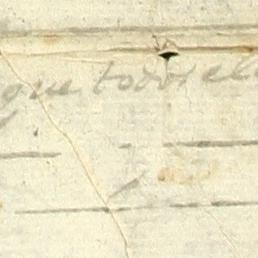 que todos el